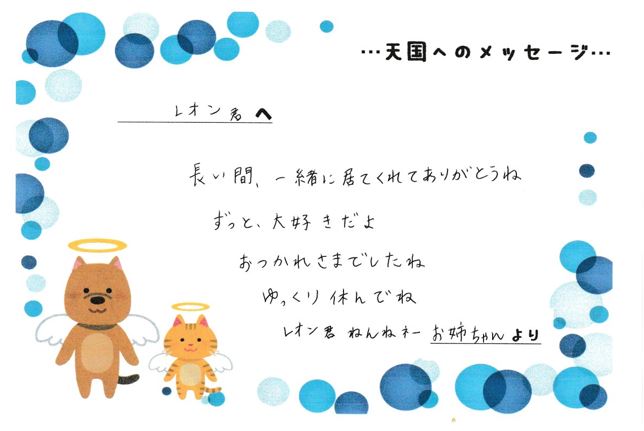 …天国へのメッセージ…
レオン君へ
長い間、一緒に居てくれてありがとうね
ずっと、大好きだよ
おつかれさまでしたね
ゆっくり休んでね
レオン君 ねんねネー お姉ちゃんより